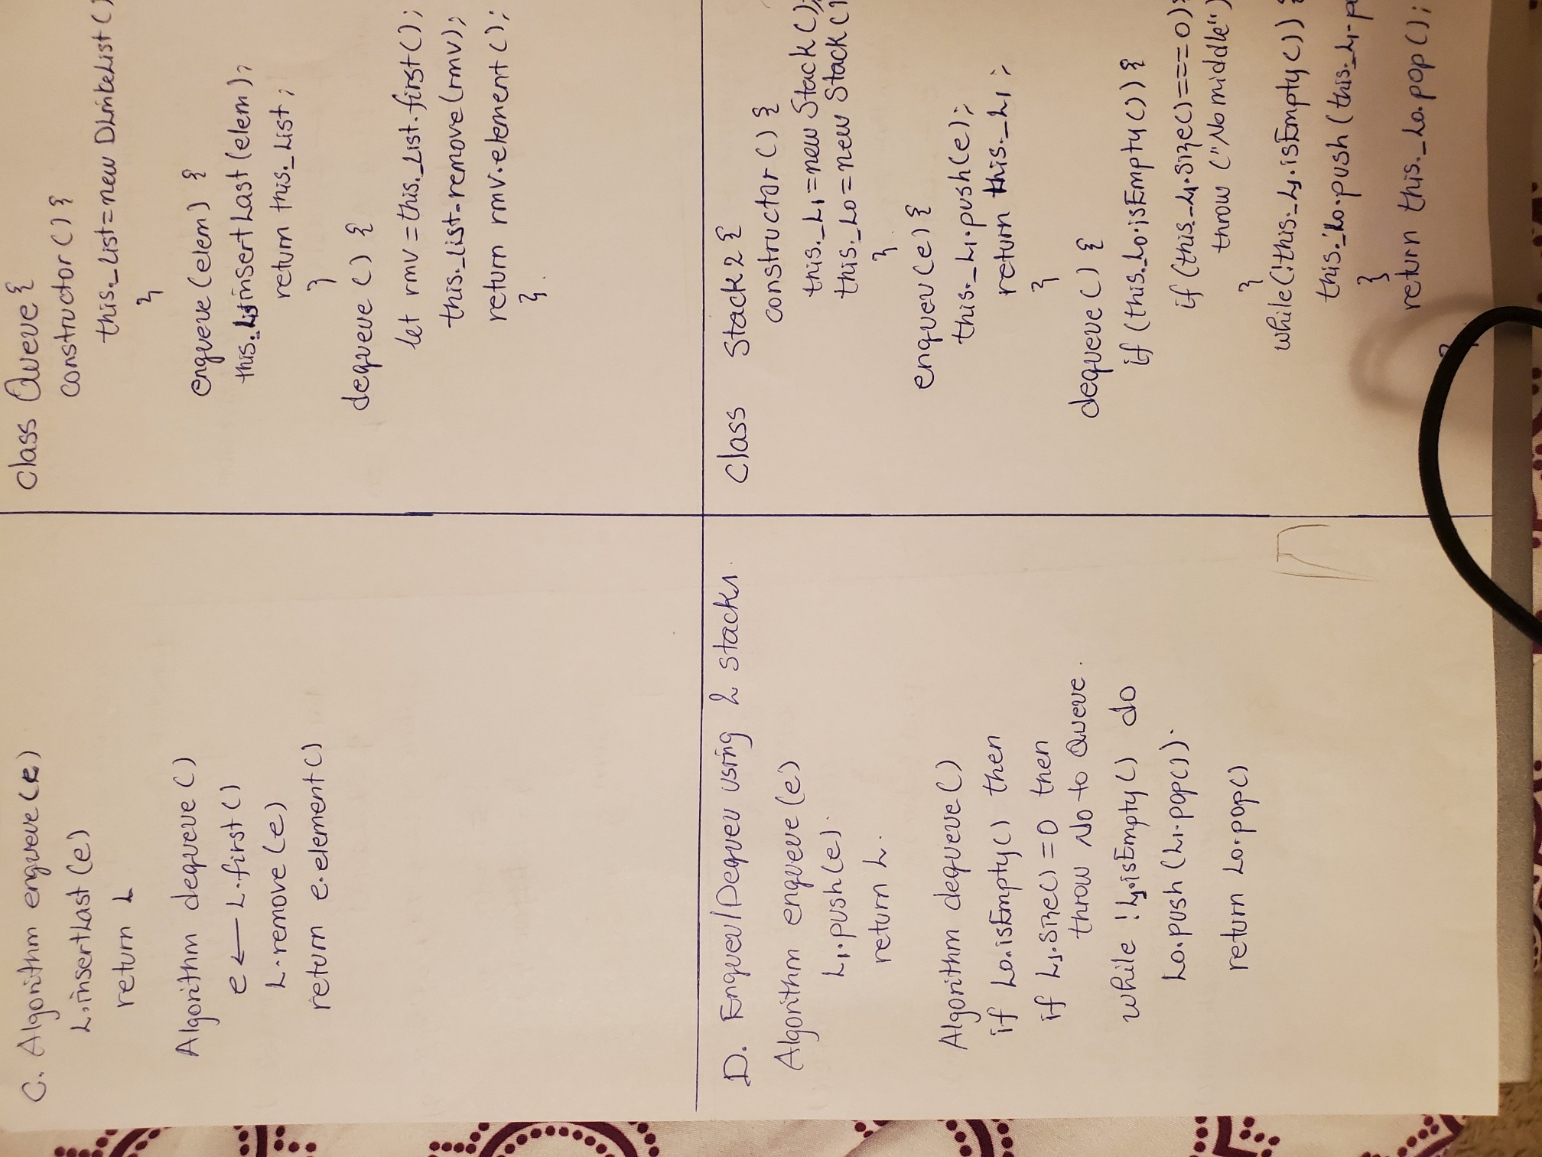 C. Algorithm enqueue(e)
L.insertLast(e)
return L
Algorithm dequeue()
e ← L.first()
L.remove(e)
return e.element()
class Queue {
constructor() {
this._List = new DLinkeList()
}
enqueue(elem) {
this._List insertLast(elem);
return this._List;
}
dequeue() {
let rmv = this._List.first();
this._List.remove(rmv);
return rmv.element();
}.
D. Enqueu/Dequeu using 2 stacks.
Algorithm enqueue(e)
L1.push(e).
return L.
Algorithm dequeue()
if Lo.isEmpty() then
if L1.size() = 0 then
throw No to Queue.
while !L1.isEmpty() do
Lo.push(L1.pop()).
return Lo.pop()
class Stack2 {
constructor() {
this._L1 = new Stack();
this._Lo = new Stack()
}
enqueu(e) {
this._L1.push(e);
return this._L1;
}
dequeue() {
if (this._Lo.isEmpty()) {
if (this._L1.size() === 0) {
throw ("No middle")
}
while(!this._L1.isEmpty()) {
this._Lo.push(this._L1.p
}
return this._Lo.pop();
}